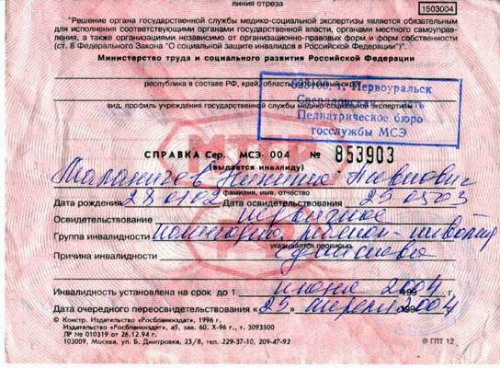 линия отреза
1503004
"Решение органа государственной службы медико-социальной экспертизы является обязательным
для исполнения соответствующими органами государственной власти, органами местного самоуправ-
ления, а также организациями независимо от организационно-правовых форм и форм собственности
(ст. 8 Федерального Закона "О социальной защите инвалидов в Российской Федерации").
Министерство труда и социального развития Российской Федерации
республика в составе РФ, край,
г. Первоуральск
вид, профиль учреждения государственной службы медико-социальной экспертизы
Педиатрическое бюро
госслужбы МСЭ
СПРАВКА Сер. МСЭ-004 № 853903
(выдается инвалиду)
фамилия, имя, отчество
Дата рождения 28 01 02 Дата освидетельствования 25 05 03
Освидетельствование
Группа инвалидности категория ребенок-инвалид
указывается прописью
Причина инвалидности
Инвалидность установлена на срок до 1 июня 2004
Дата очередного переосвидетельствования «25» апреля 2004
© Констр. Издательство «Росбланкиздат», 1996 г.
Издательство «Росбланкиздат», з. 3093500
ЛР № 010319 от 26.12.94 г.
103009, Москва, ул. Б. Дмитровка, 23/8, тел. 229-37-10, 209-47-92
Ф ГПТ 12